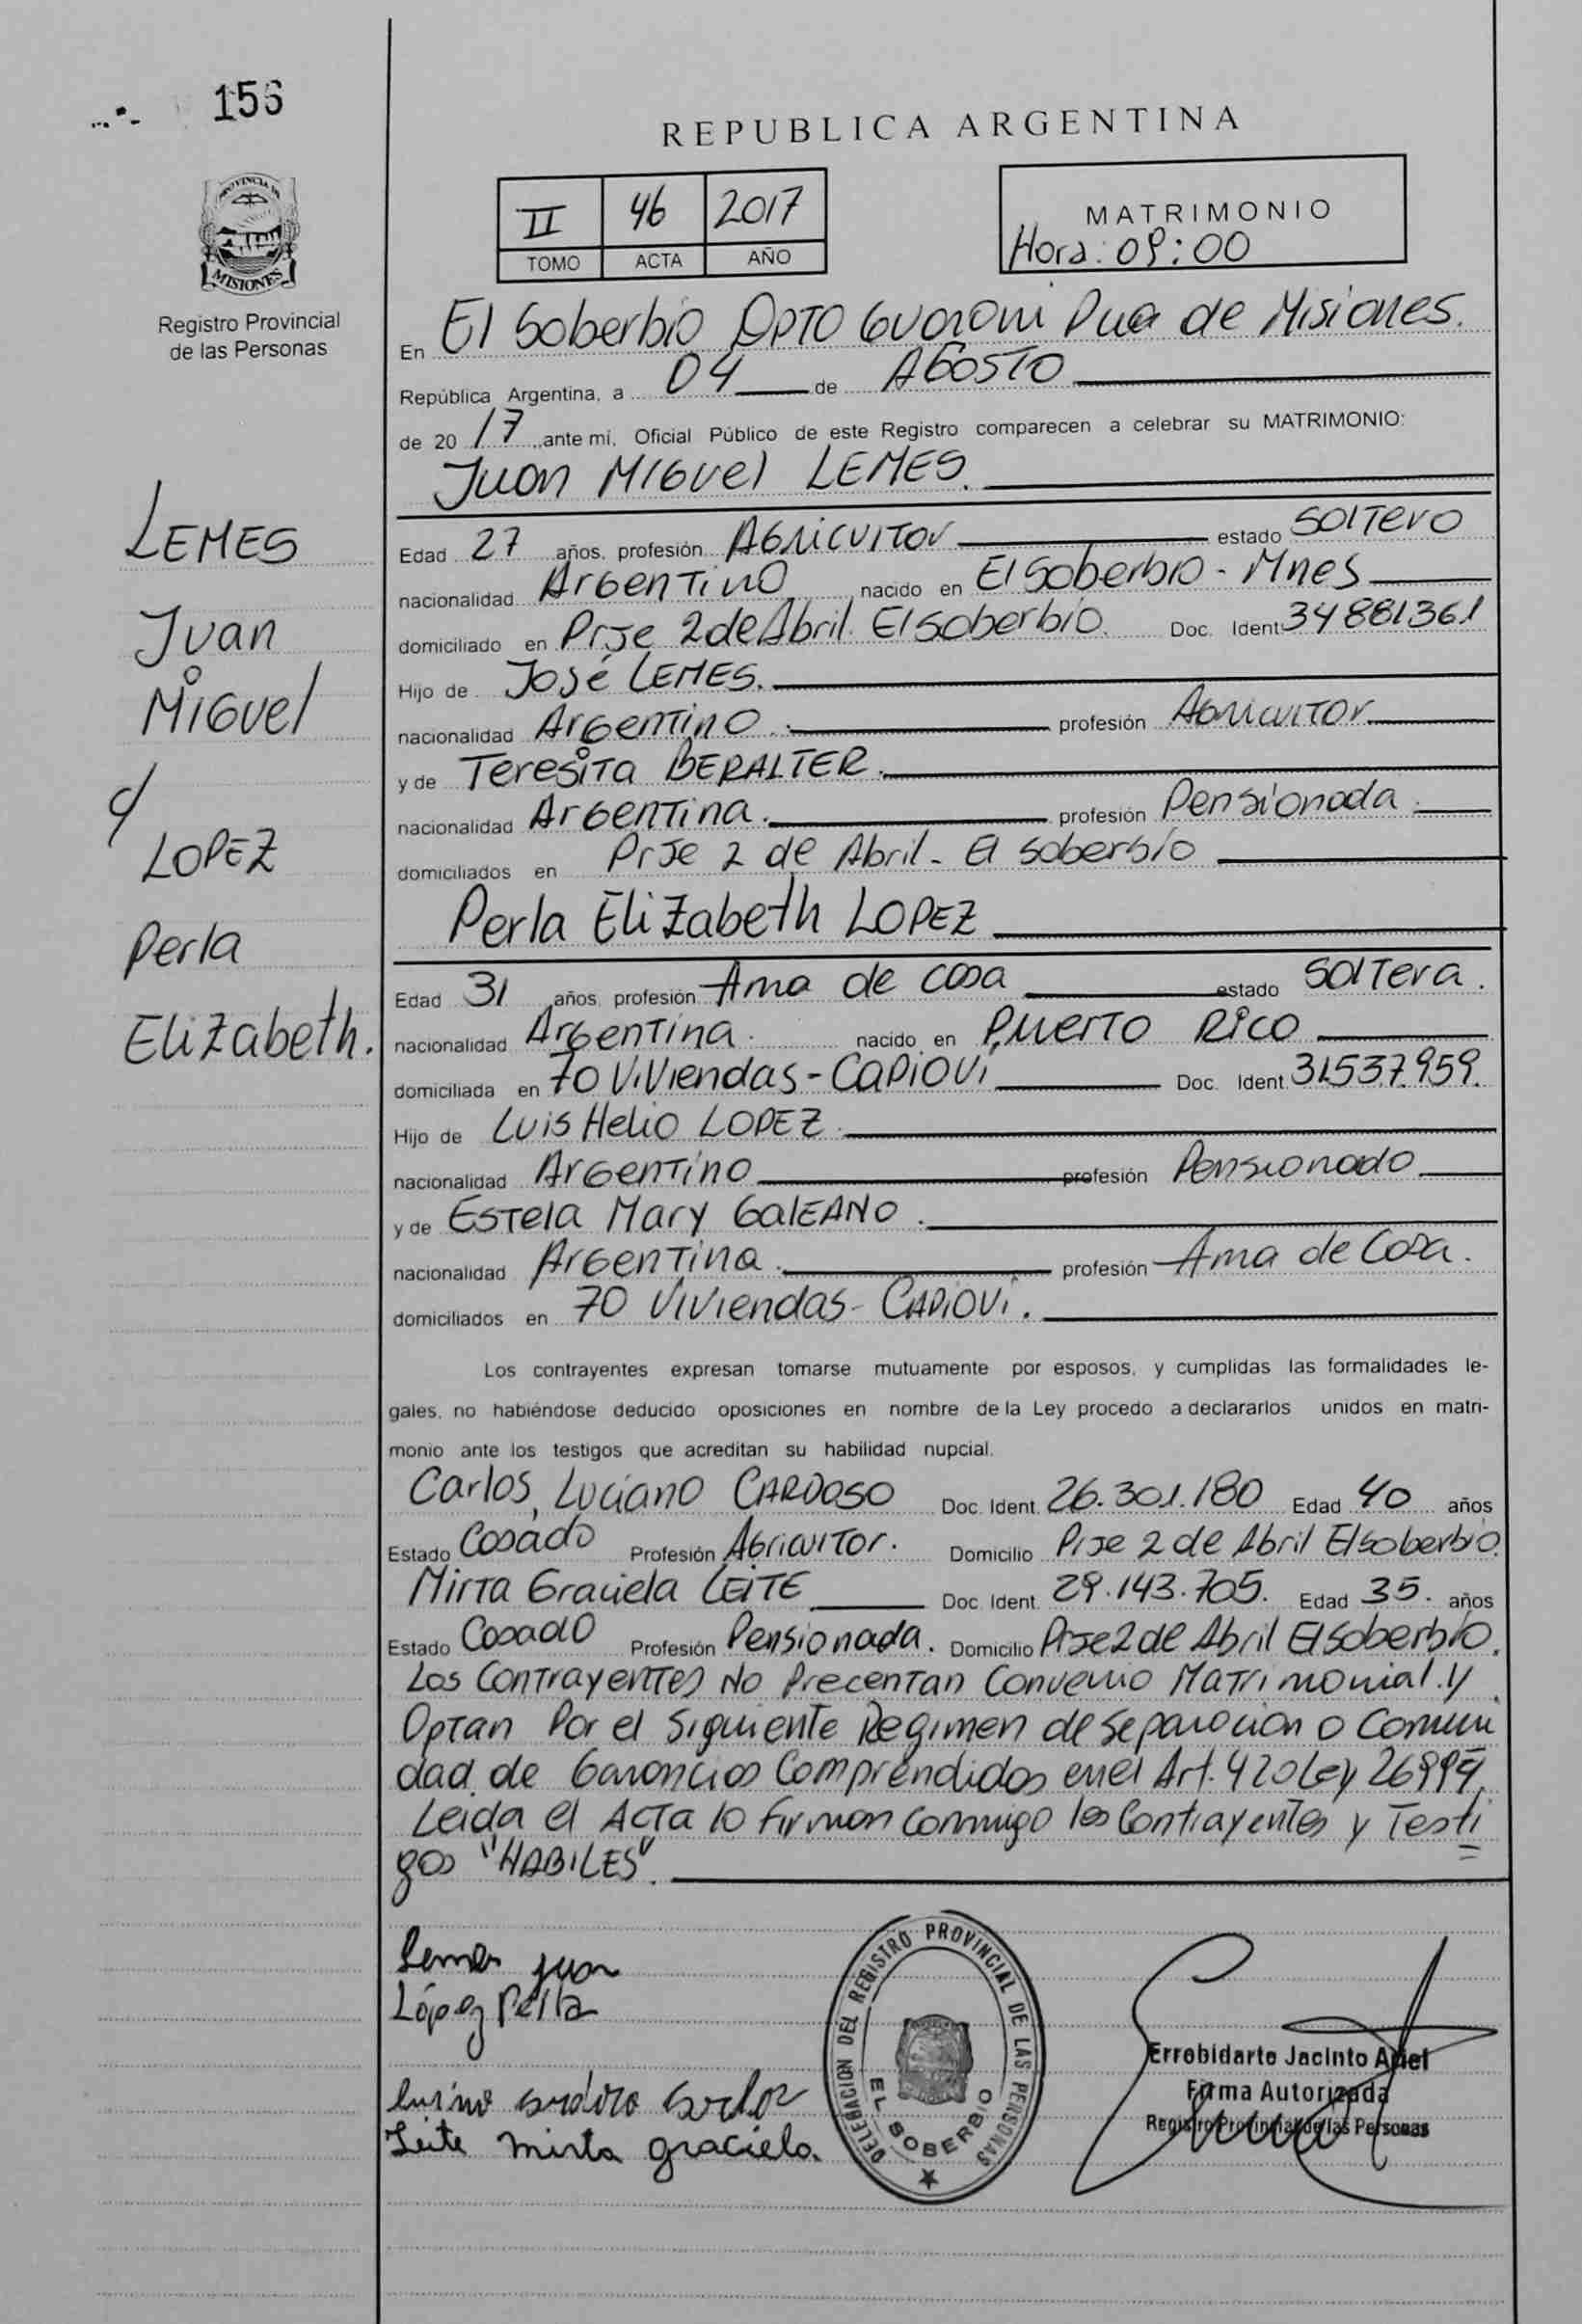 156
PROVINCIA DE
MISIONES
Registro Provincial
de las Personas
LEMES
Juan
Miguel
c/
LOPEZ
Perla
Elizabeth.
REPUBLICA ARGENTINA
II 46 2017
TOMO ACTA AÑO
MATRIMONIO
Hora: 09:00
En El Soberbio Dpto Guarani Pcia de Misiones.
República Argentina, a 04 de AGOSTO
de 2017 ante mi, Oficial Público de este Registro comparecen a celebrar su MATRIMONIO:
Juan Miguel LEMES.
Edad 27 años, profesión Agricultor estado Soltero
nacionalidad Argentino nacido en El Soberbio - Mnes
domiciliado en Prje 2 de Abril. El Soberbio. Doc. Ident 34881361
Hijo de José LEMES.
nacionalidad Argentino. profesión Agricultor
y de Teresita BERALTER.
nacionalidad Argentina. profesión Pensionada.
domiciliados en Prje 2 de Abril - El Soberbio
Perla Elizabeth LOPEZ
Edad 31 años, profesión Ama de Casa estado Soltera.
nacionalidad Argentina. nacido en Puerto Rico
domiciliada en 70 Viviendas - CAPIOVI Doc. Ident. 31.537.959.
Hijo de Luis Helio LOPEZ.
nacionalidad Argentino profesión Pensionado
y de Estela Mary GALEANO.
nacionalidad Argentina. profesión Ama de Casa.
domiciliados en 70 Viviendas - CAPIOVI.
Los contrayentes expresan tomarse mutuamente por esposos, y cumplidas las formalidades le-
gales, no habiéndose deducido oposiciones en nombre de la Ley procedo a declararlos unidos en matri-
monio ante los testigos que acreditan su habilidad nupcial.
Carlos, Luciano CARDOSO Doc. Ident. 26.301.180 Edad 40 años
Estado Casado Profesión Agricultor. Domicilio Prje 2 de Abril El Soberbio.
Mirta Graciela LEITE Doc. Ident. 29.143.705. Edad 35. años
Estado Casado Profesión Pensionada. Domicilio Prje 2 de Abril El Soberbio.
Los Contrayentes No Precentan Convenio Matrimonial y
Optan Por el Siguiente Regimen de Separacion o Comuni
dad de Ganancias Comprendidos en el Art. 420 Ley 26994.
Leida el Acta lo firman conmigo los Contrayentes y Testi
gos "HABILES".
Lemes Juan
López Perla
Leite Mirta Graciela.
DELEGACION DEL REGISTRO PROVINCIAL DE LAS PERSONAS
EL SOBERBIO
Errobidarte Jacinto Ariel
Firma Autorizada
Registro Provincial de las Personas